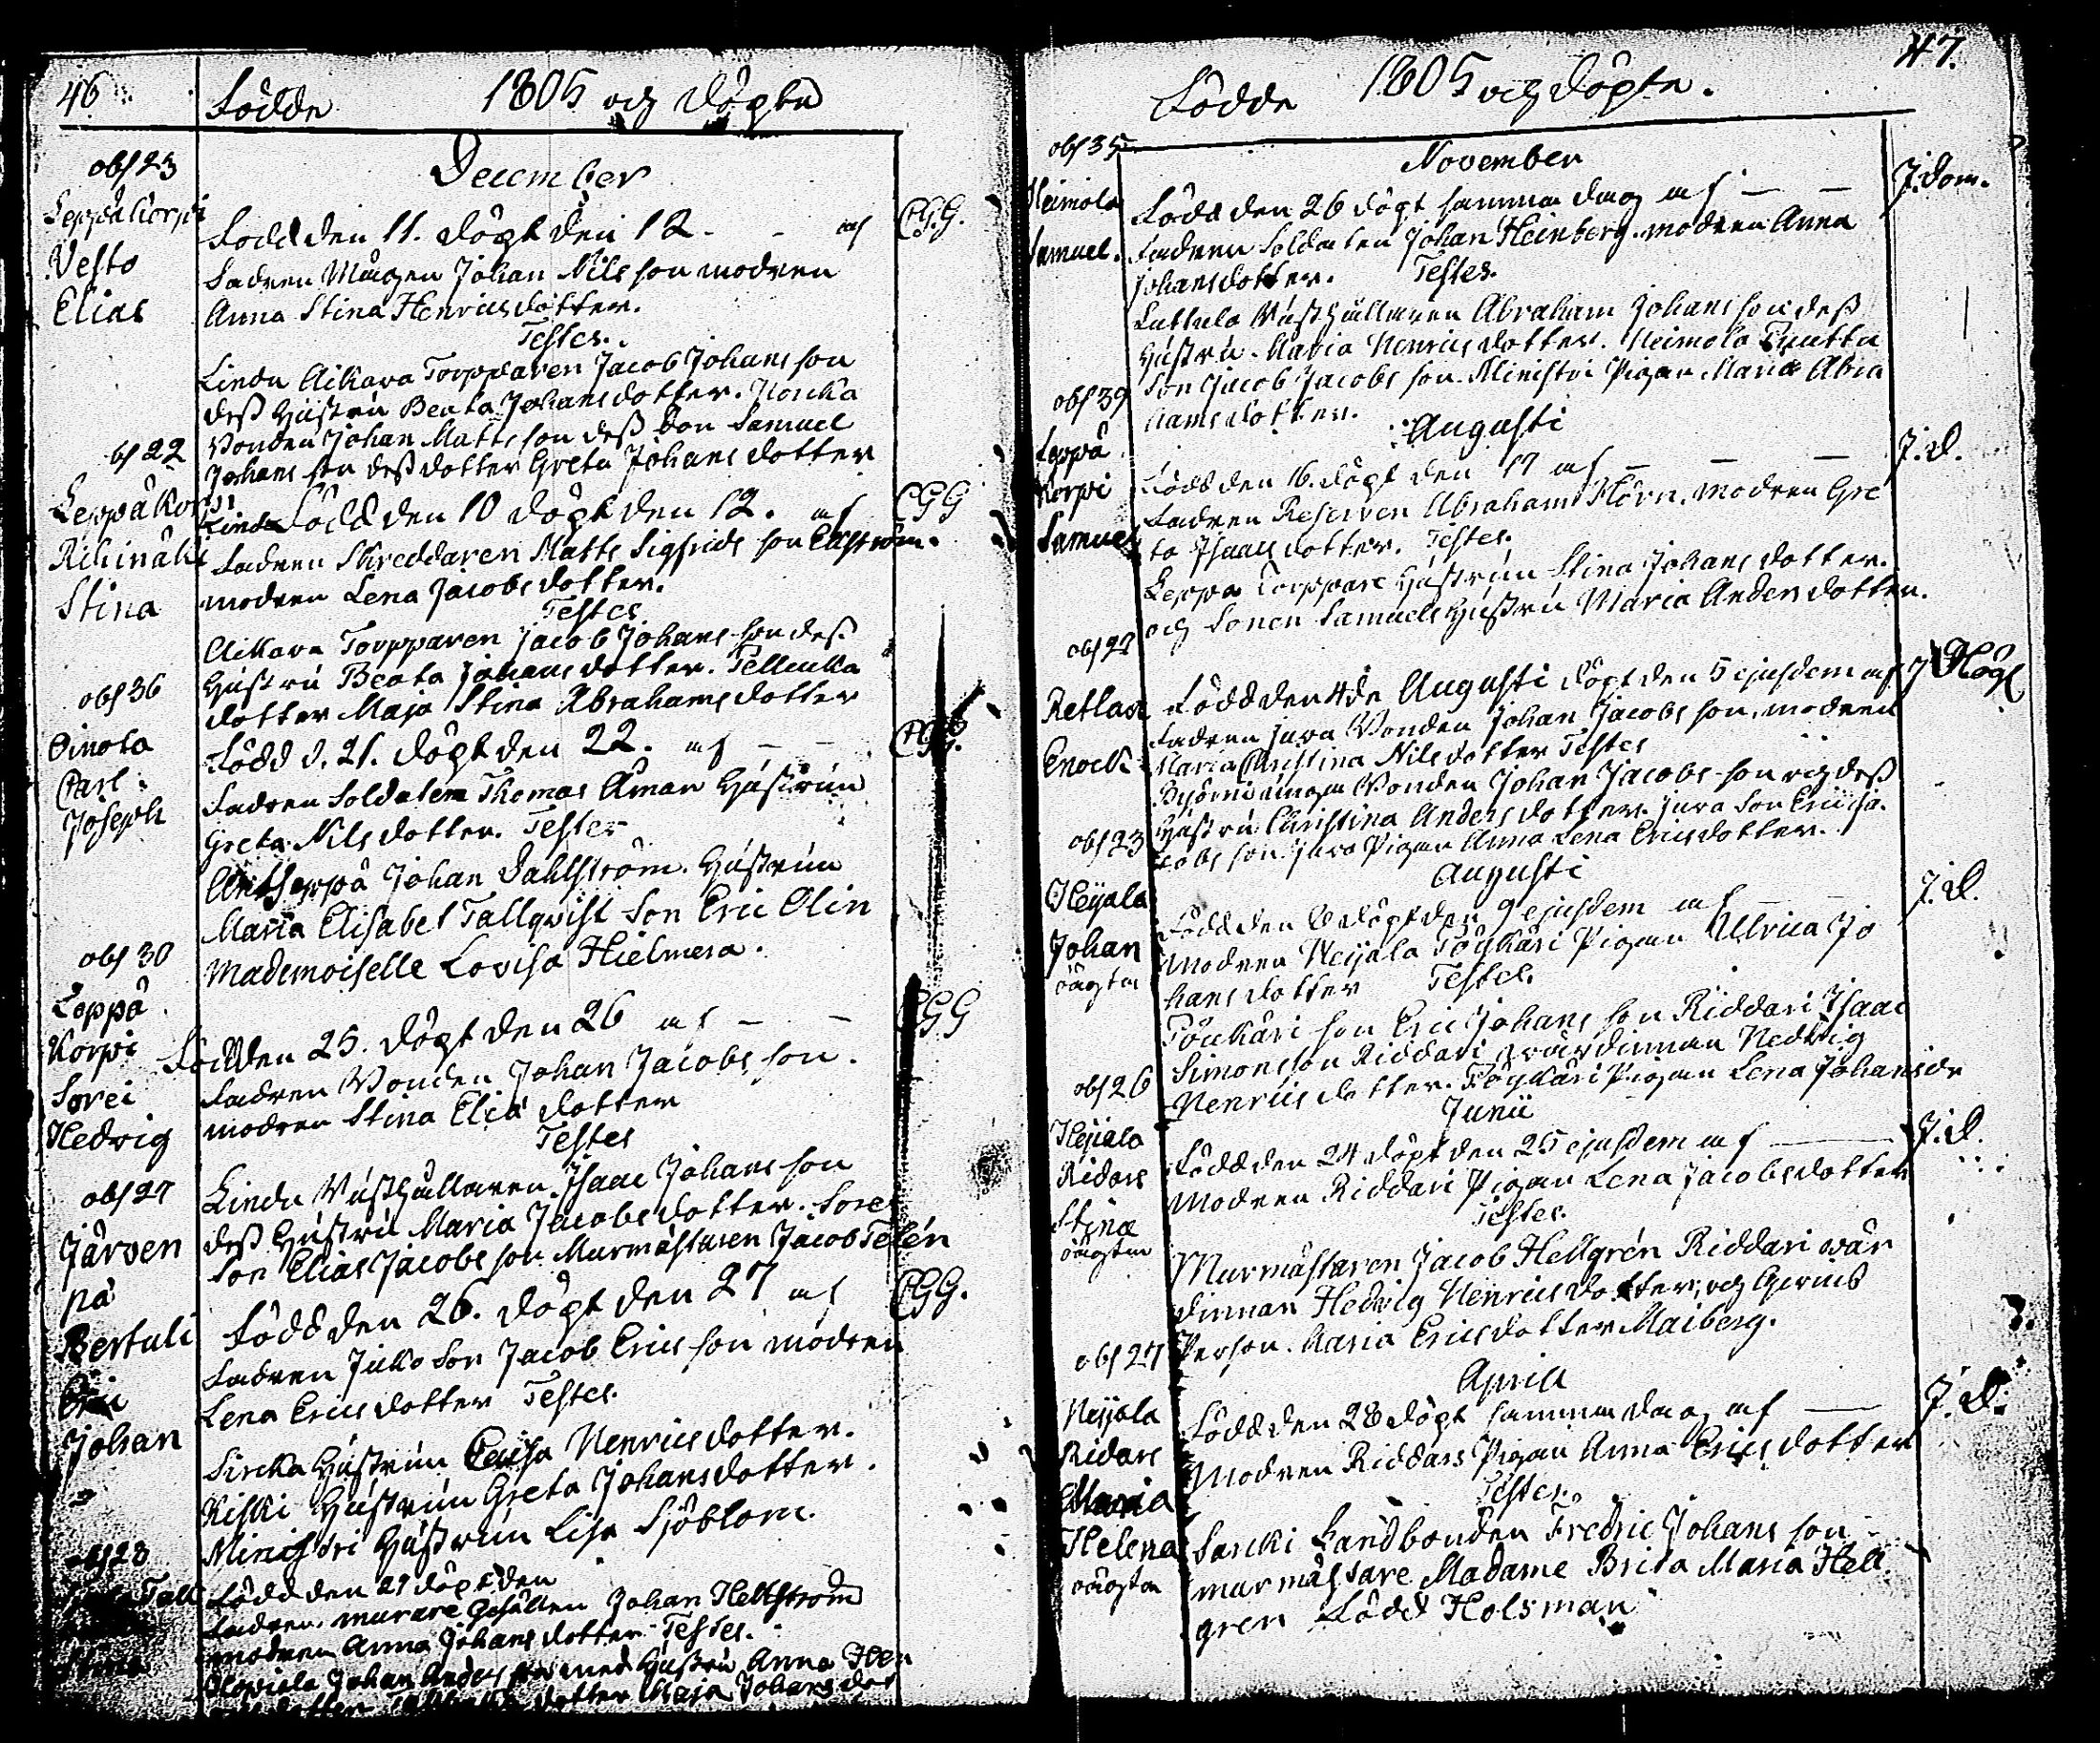 46.
Födde 1805 och Döpte
December
obs 23
Leppäkorpi
Vesto
Elias
Född den 11. döpt den 12. af CGG.
Fadren Mågen Johan Nilsson modren
Anna Stina Henricsdotter.
Testes.
Lindu Aikara Torpparen Jacob Johansson
dess Hustru Beata Johansdotter.
Bonden Johan Mattsson dess Son Samuel
Johansson dess dotter Greta Johansdotter
obs 22
Leppäkorpi
Stina
Född den 10 döpt den 12. af CGG
Fadren Skreddaren Matts Sigfridsson Ekström.
modren Lena Jacobsdotter.
Testes
Aikara Torpparen Jacob Johansson dess
Hustru Beata Johansdotter.
dotter Maja Stina Abrahamsdotter
obs 36
Oinola
Carl
Joseph
Född d. 21. döpt den 22. af CGG.
Fadren Soldaten Thomas Åman Hustrun
Greta Nilsdotter. Testes
Johan Dahlström. Hustrun
Maria Elisabet Tallqvist Son Eric Olin
Mademoiselle Lovisa Hielmera.
obs 30
Leppä
Korpi
Sorri
Hedvig
Född den 25. döpt den 26 af CGG
Fadren Bonden Johan Jacobsson.
modren Stina Elia dotter
Testes
Lindu Inhyshållaren Isaac Johansson
dess Hustru Maria Jacobsdotter.
Son Elias Jacobsson Murmästaren Jacob Telén
obs 27
Järven
pä
Bertuli
Johan
Född den 26. döpt den 27 af CGG.
Fadren Juko Son Jacob Ericsson modren
Lena Ericsdotter Testes.
Hustrun Caisa Henricsdotter.
Kiski Hustrun Greta Johansdotter.
Ministri Hustrun Lisa Sjöblom.
Född den 27 döpt den
Fadren murare Gesällen Johan Hellström
modren Anna Johansdotter Testes.
Johan Andersson med Hustru Anna Hen
dotter Maja Johansdot
47.
Födde 1805 och Döpte.
November
obs 35
Heimola
Samuel.
Född den 26 döpt samma dag af J. Dom.
Fadren Soldaten Johan Heinberg. modren Anna
Johansdotter. Testes.
Abraham Johansson dess
Hustru Maria Henricsdotter. Heimola
Son Jacob Jacobsson. Ministri Pigan Maria Abra
hamsdotter.
Augusti
obs 39
Leppä
Korpi
Samuel
Född den 16. döpt den 17 af J. D.
Fadren Reserven Abraham Hörn. modren Gre
ta Isaacsdotter. Testes.
Leppä Torppare Hustrun Stina Johansdotter.
och Sonen Samuels Hustru Maria Andersdotter.
obs 27
Retlax
Enock
Född den 4de Augusti döpt den 5 ejusdem af J Hög
Fadren Jura Bonden Johan Jacobsson, modren
Maria Christina Nilsdotter Testes
Bonden Johan Jacobsson och dess
Hustru Christina Andersdotter. Jura Son Eric Ja
cobsson Jura Pigan Anna Lena Ericsdotter.
Augusti
obs 23
Heijala
Johan
oägta
Född den 8 döpt den 9 ejusdem af J. D.
Modren Heijala Pöykäri Pigan Ulrica Jo
hansdotter Testes.
Pöykäri son Eric Johansson Riddari Isaac
Simonsson Riddari värdinnan Hedvig
Henricsdotter. Pöykäri Pigan Lena Johansdr
Junii
obs 26
Heijala
Ridars
Stina
oägta
Född den 24 döpt den 25 ejusdem af J. D.
Modren Riddari Pigan Lena Jacobsdotter
Testes.
Murmästaren Jacob Hellgrén Riddari wär
dinnan Hedvig Henricsdotter, och
Person. Maria Ericsdotter Maiberg.
April
obs 27
Heijala
Ridars
Maria
Helena
oägta
Född den 28 döpt samma dag af J. D.
Modren Riddars Pigan Anna Ericsdotter
Testes.
Sarcki Landbonden Fredric Johansson
murmästare Madame Brita Maria Hell
gren Född Holsman